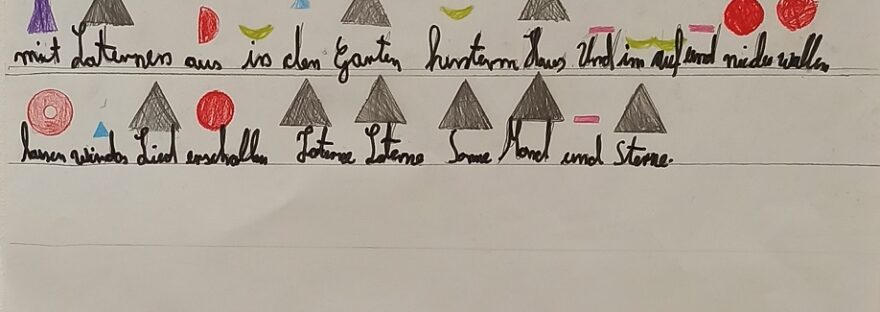 mit Laternen aus in den Garten hinterm Haus Und im auf und nieder wallen
lassen wir das Lied erschallen Laterne Laterne Sonne Mond und Sterne.